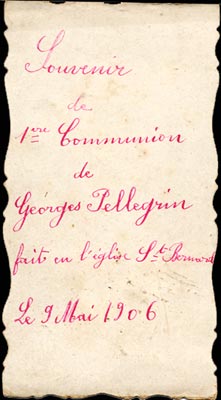 Souvenir
de
1ère Communion
de
Géorges Pellegrin
fait en l'église St Bernard
Le 9 Mai 1906